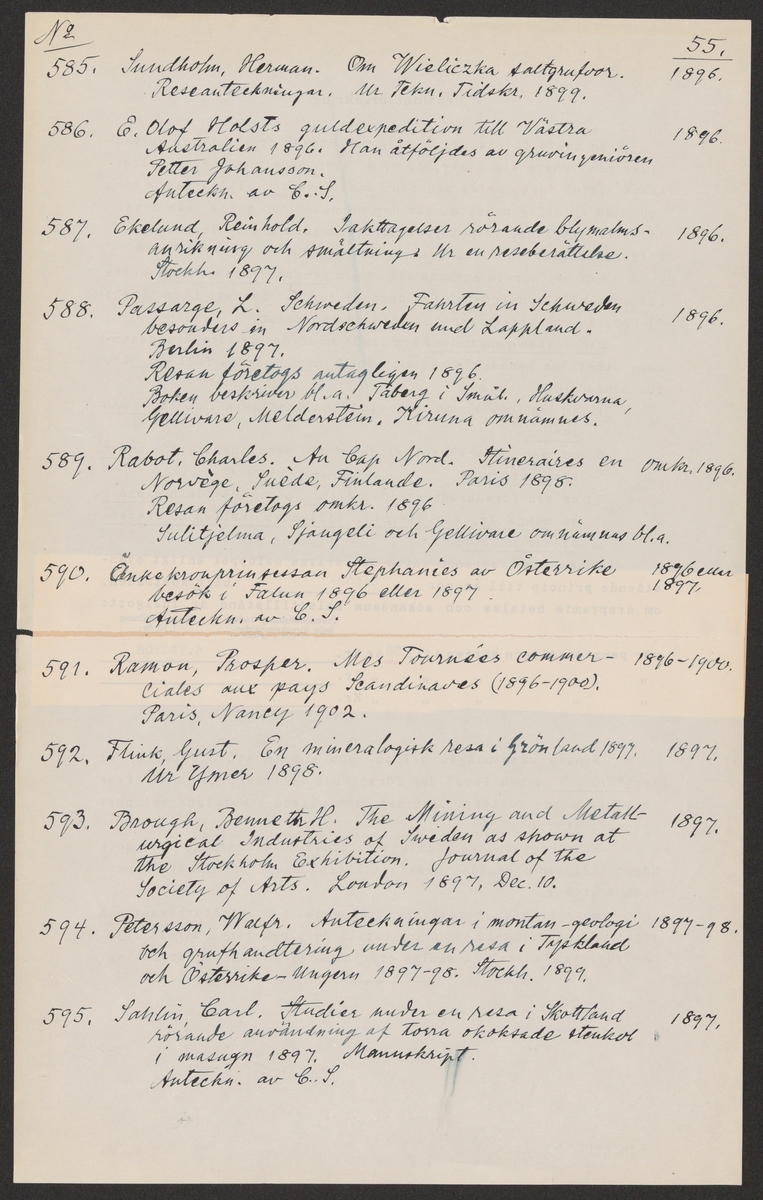 No
55.
585. Sundholm, Herman. Om Wieliczka saltgrufvor. 1896.
Reseanteckningar. Ur Tekn. Tidskr. 1899.
586. E. Olof Holsts guldexpedition till Västra 1896.
Australien 1896. Han åtföljdes av gruvingeniören
Petter Johansson.
Anteckn. av C. S.
587. Ekelund, Reinhold. Iakttagelser rörande blymalms- 1896.
anrikning och smältning. Ur en reseberättelse.
Stockh. 1897.
588. Passarge, L. Schweden. Fahrten in Schweden 1896.
besonders in Nordschweden und Lappland.
Berlin 1897.
Resan företogs antagligen 1896.
Boken beskriver bl.a. Taberg i Smål., Huskvarna,
Gellivare, Melderstein. Kiruna omnämnes.
589. Rabot, Charles. Au Cap Nord. Itineraires en omkr. 1896.
Norvège, Suède, Finlande. Paris 1898.
Resan företogs omkr. 1896
Sulitjelma, Sjangeli och Gellivare omnämnas bl.a.
590. Änkekronprinsessan Stephanies av Österrike 1896 eller
besök i Falun 1896 eller 1897 1897.
Anteckn. av C. S.
591. Ramon, Prosper. Mes Tournées commer- 1896-1900.
ciales aux pays Scandinaves (1896-1900).
Paris, Nancy 1902.
592. Flink, Gust. En mineralogisk resa i Grönland 1897. 1897.
Ur Ymer 1898.
593. Brough, Benneth H. The Mining and Metall- 1897.
urgical Industries of Sweden as shown at
the Stockholm Exhibition. Journal of the
Society of Arts. London 1897, Dec. 10.
594. Petersson, Walfr. Anteckningar i montan-geologi 1897-98.
och grufhandtering under en resa i Tyskland
och Österrike-Ungern 1897-98. Stockh. 1899.
595. Sahlin, Carl. Studier under en resa i Skottland 1897.
rörande användning af torra okoksade stenkol
i masugn 1897. Manuskript.
Anteckn. av C. S.